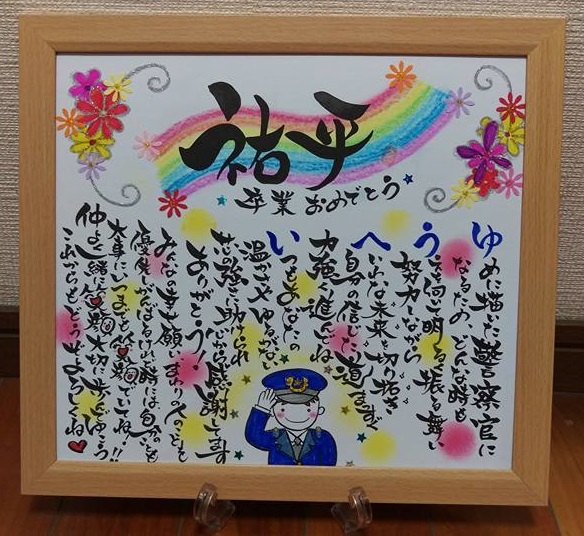 祐平
卒業おめでとう
ゆめに描いた警察官に
なるため、どんな時も
うえ向いて明るく振る舞い
努力しながら
へいわな未来を切り拓き
自分の信じた道まっすぐ
力強く進んでね
いつもあなたの
温かさとゆるがない
芯の強さに助けられ
心から感謝してます
ありがとう!
みんなの幸せ願いまわりの人のことも
優先しがんばるけれど時には自分のことも
大事にいつまでも笑顔でいてね!!
仲よく一緒に笑顔大切に歩んでゆこう
これからもどうぞよろしくね